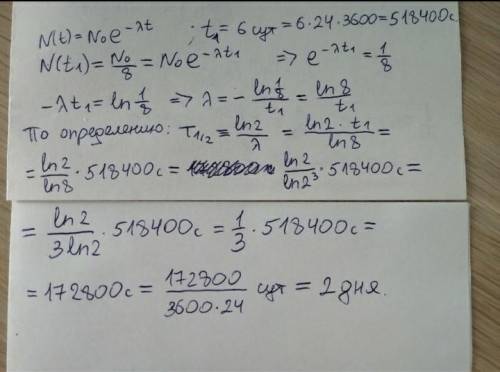 N(t) = N₀e^{-λt} ; t₁ = 6 сут = 6·24·3600 = 518400с.
N(t₁) = N₀/8 = N₀e^{-λt₁} => e^{-λt₁} = 1/8
-λt₁ = ln 1/8 => λ = - ln 1/8 / t₁ = ln 8 / t₁
По определению: T₁/₂ = ln2/λ = ln2·t₁ / ln8 =
= ln2/ln8 · 518400с = ln2/ln2³ · 518400с =
= ln2/3ln2 · 518400с = 1/3 · 518400с =
= 172800с = 172800/3600·24 сут = 2 дня.